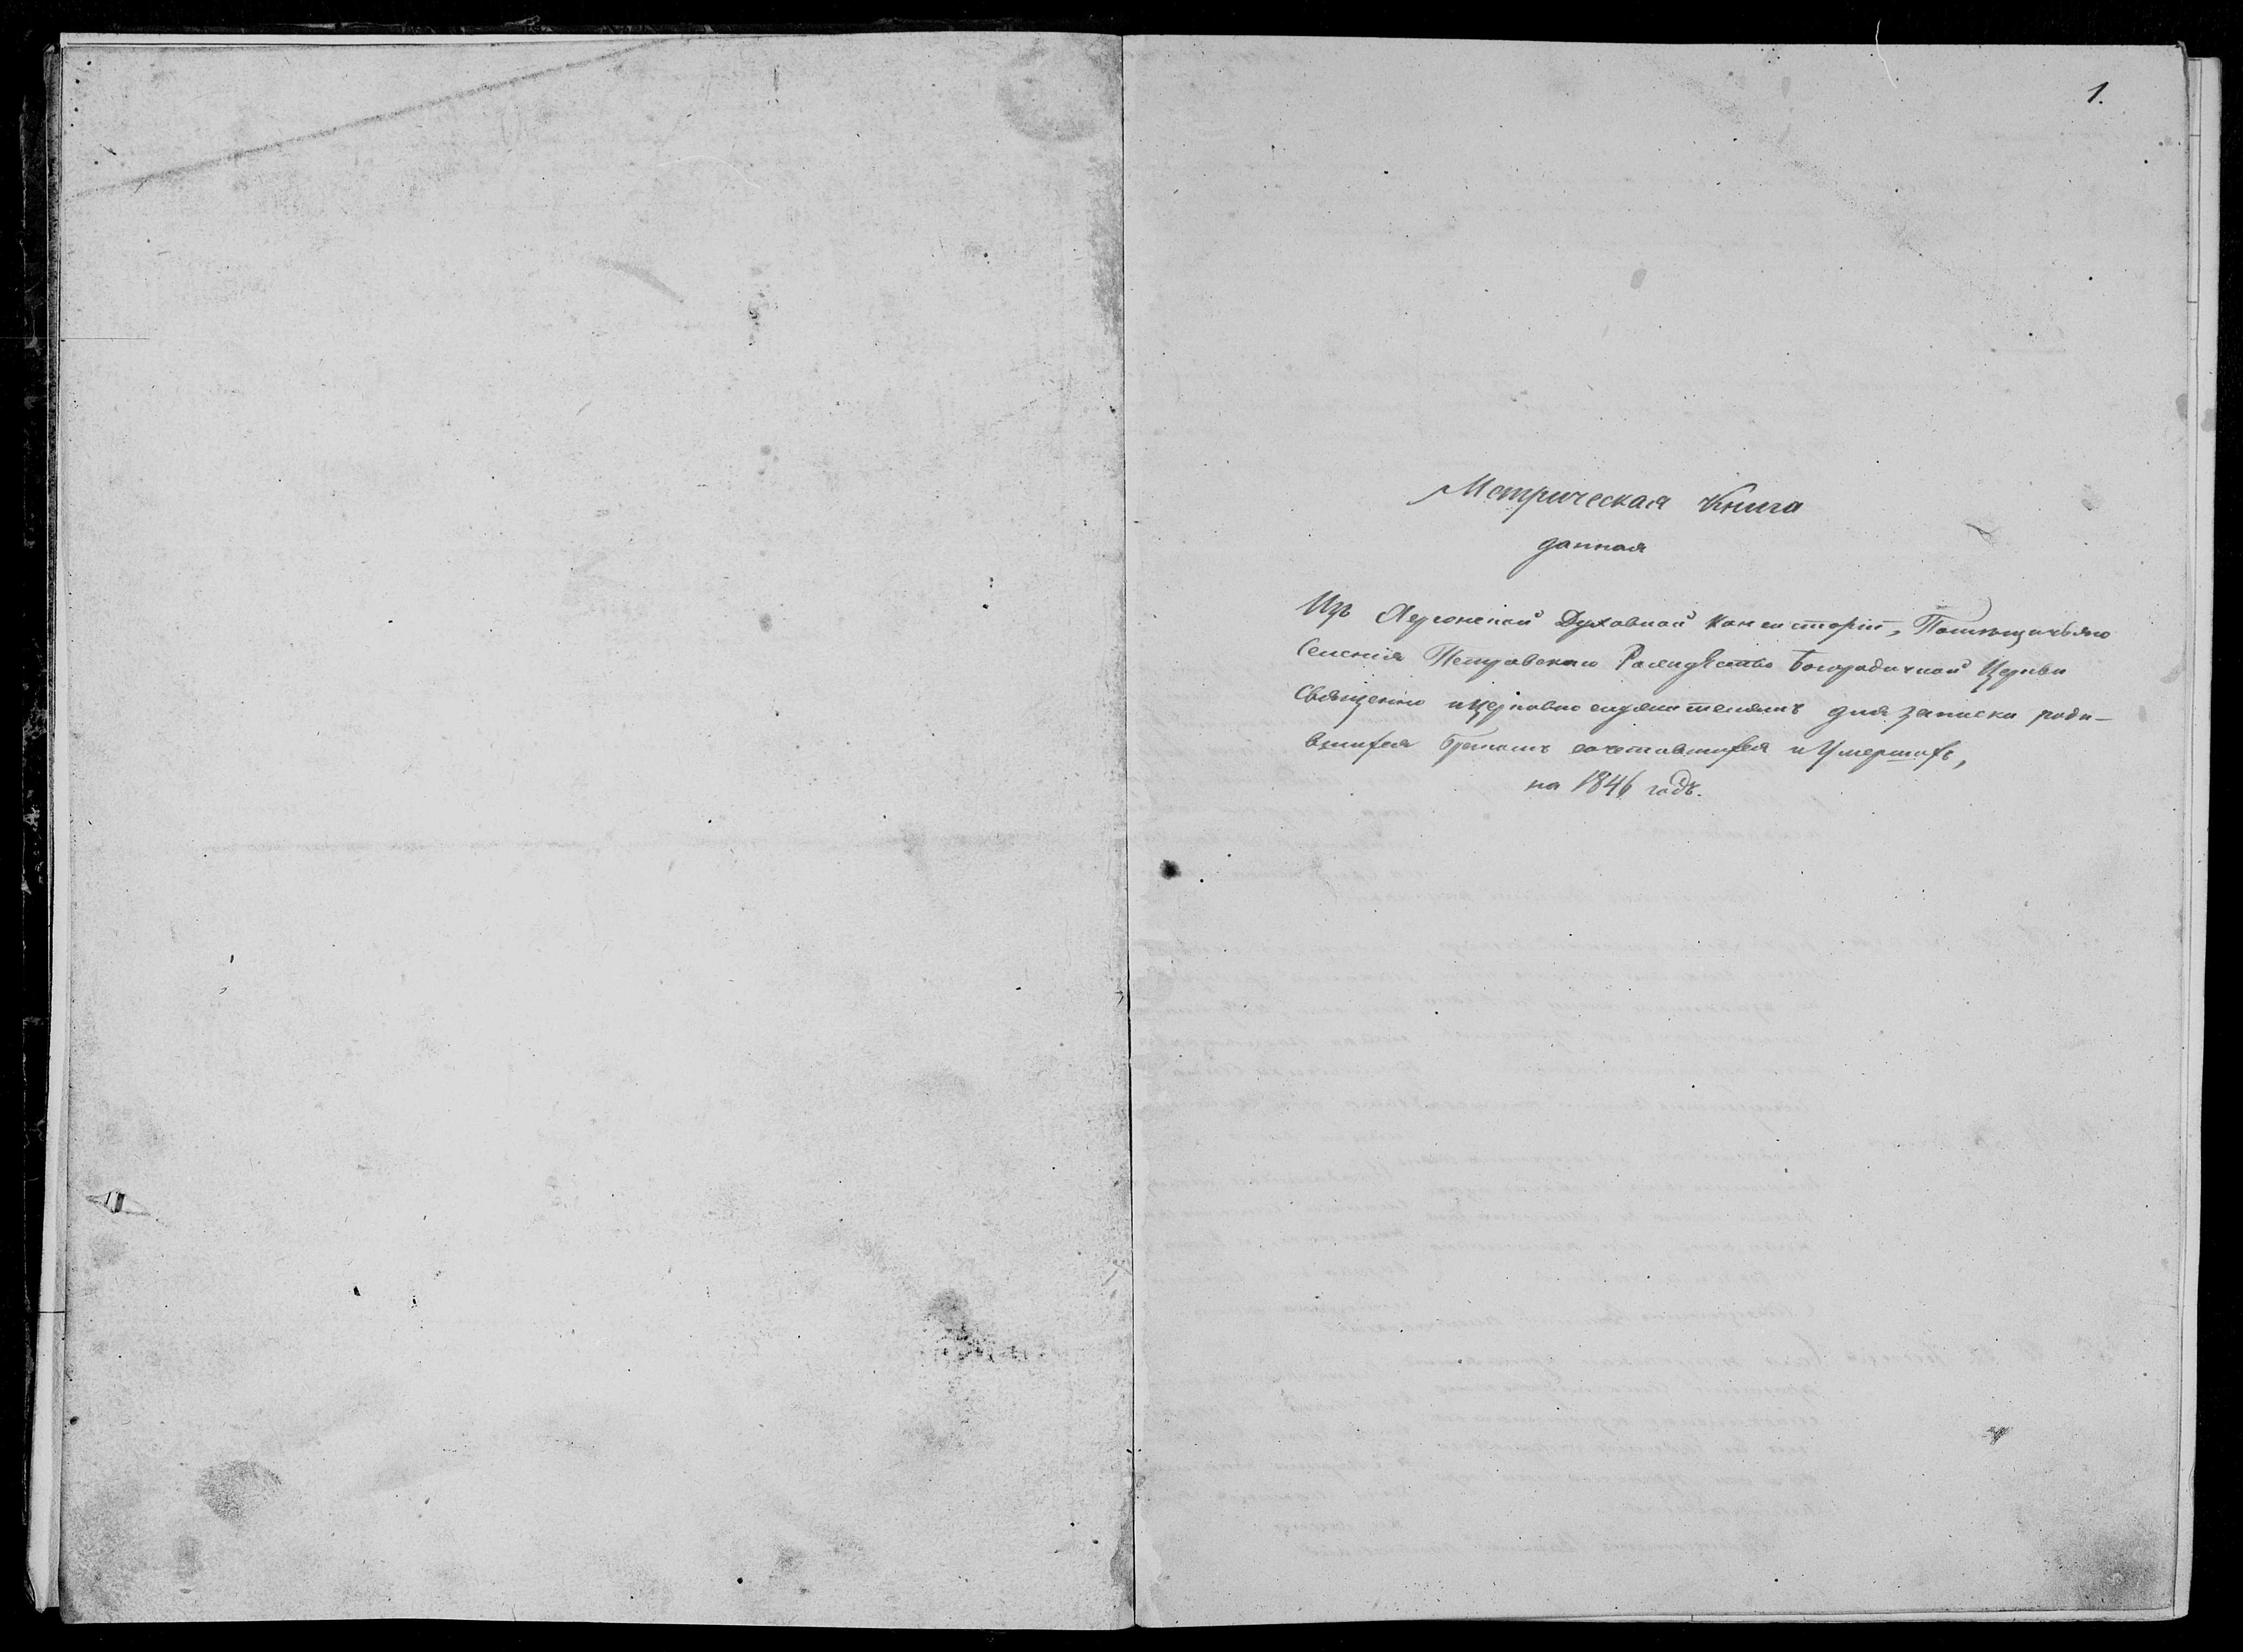 1.
Метрическая Книга
данная
Изъ Херсонской Духовной Консисторіи, Помѣщичьяго
Селенія Петровскаго Рождество Богородичной Церкви
Священно и церковно служителямъ для записки роди-
вшихся бракомъ сочетавшихся и Умершихъ,
на 1846 годъ.